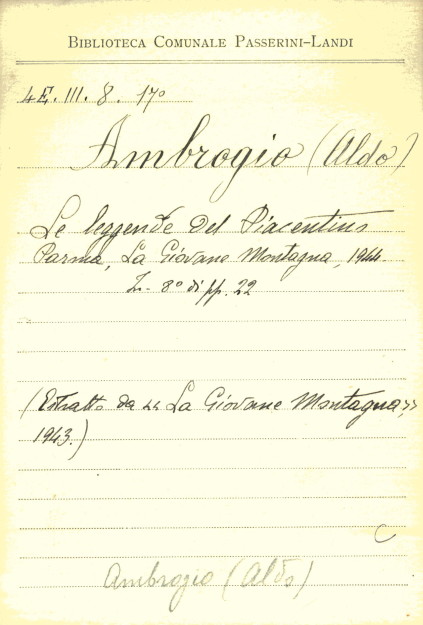 BIBLIOTECA COMUNALE PASSERINI-LANDI
4E. III. 8. 17°
Ambrogio (Aldo)
Le leggende del Piacentino
Parma, La Giovane Montagna, 1944
In-8° di pp. 22
(Estratto da "La Giovane Montagna"
1943.)
C
Ambrogio (Aldo)